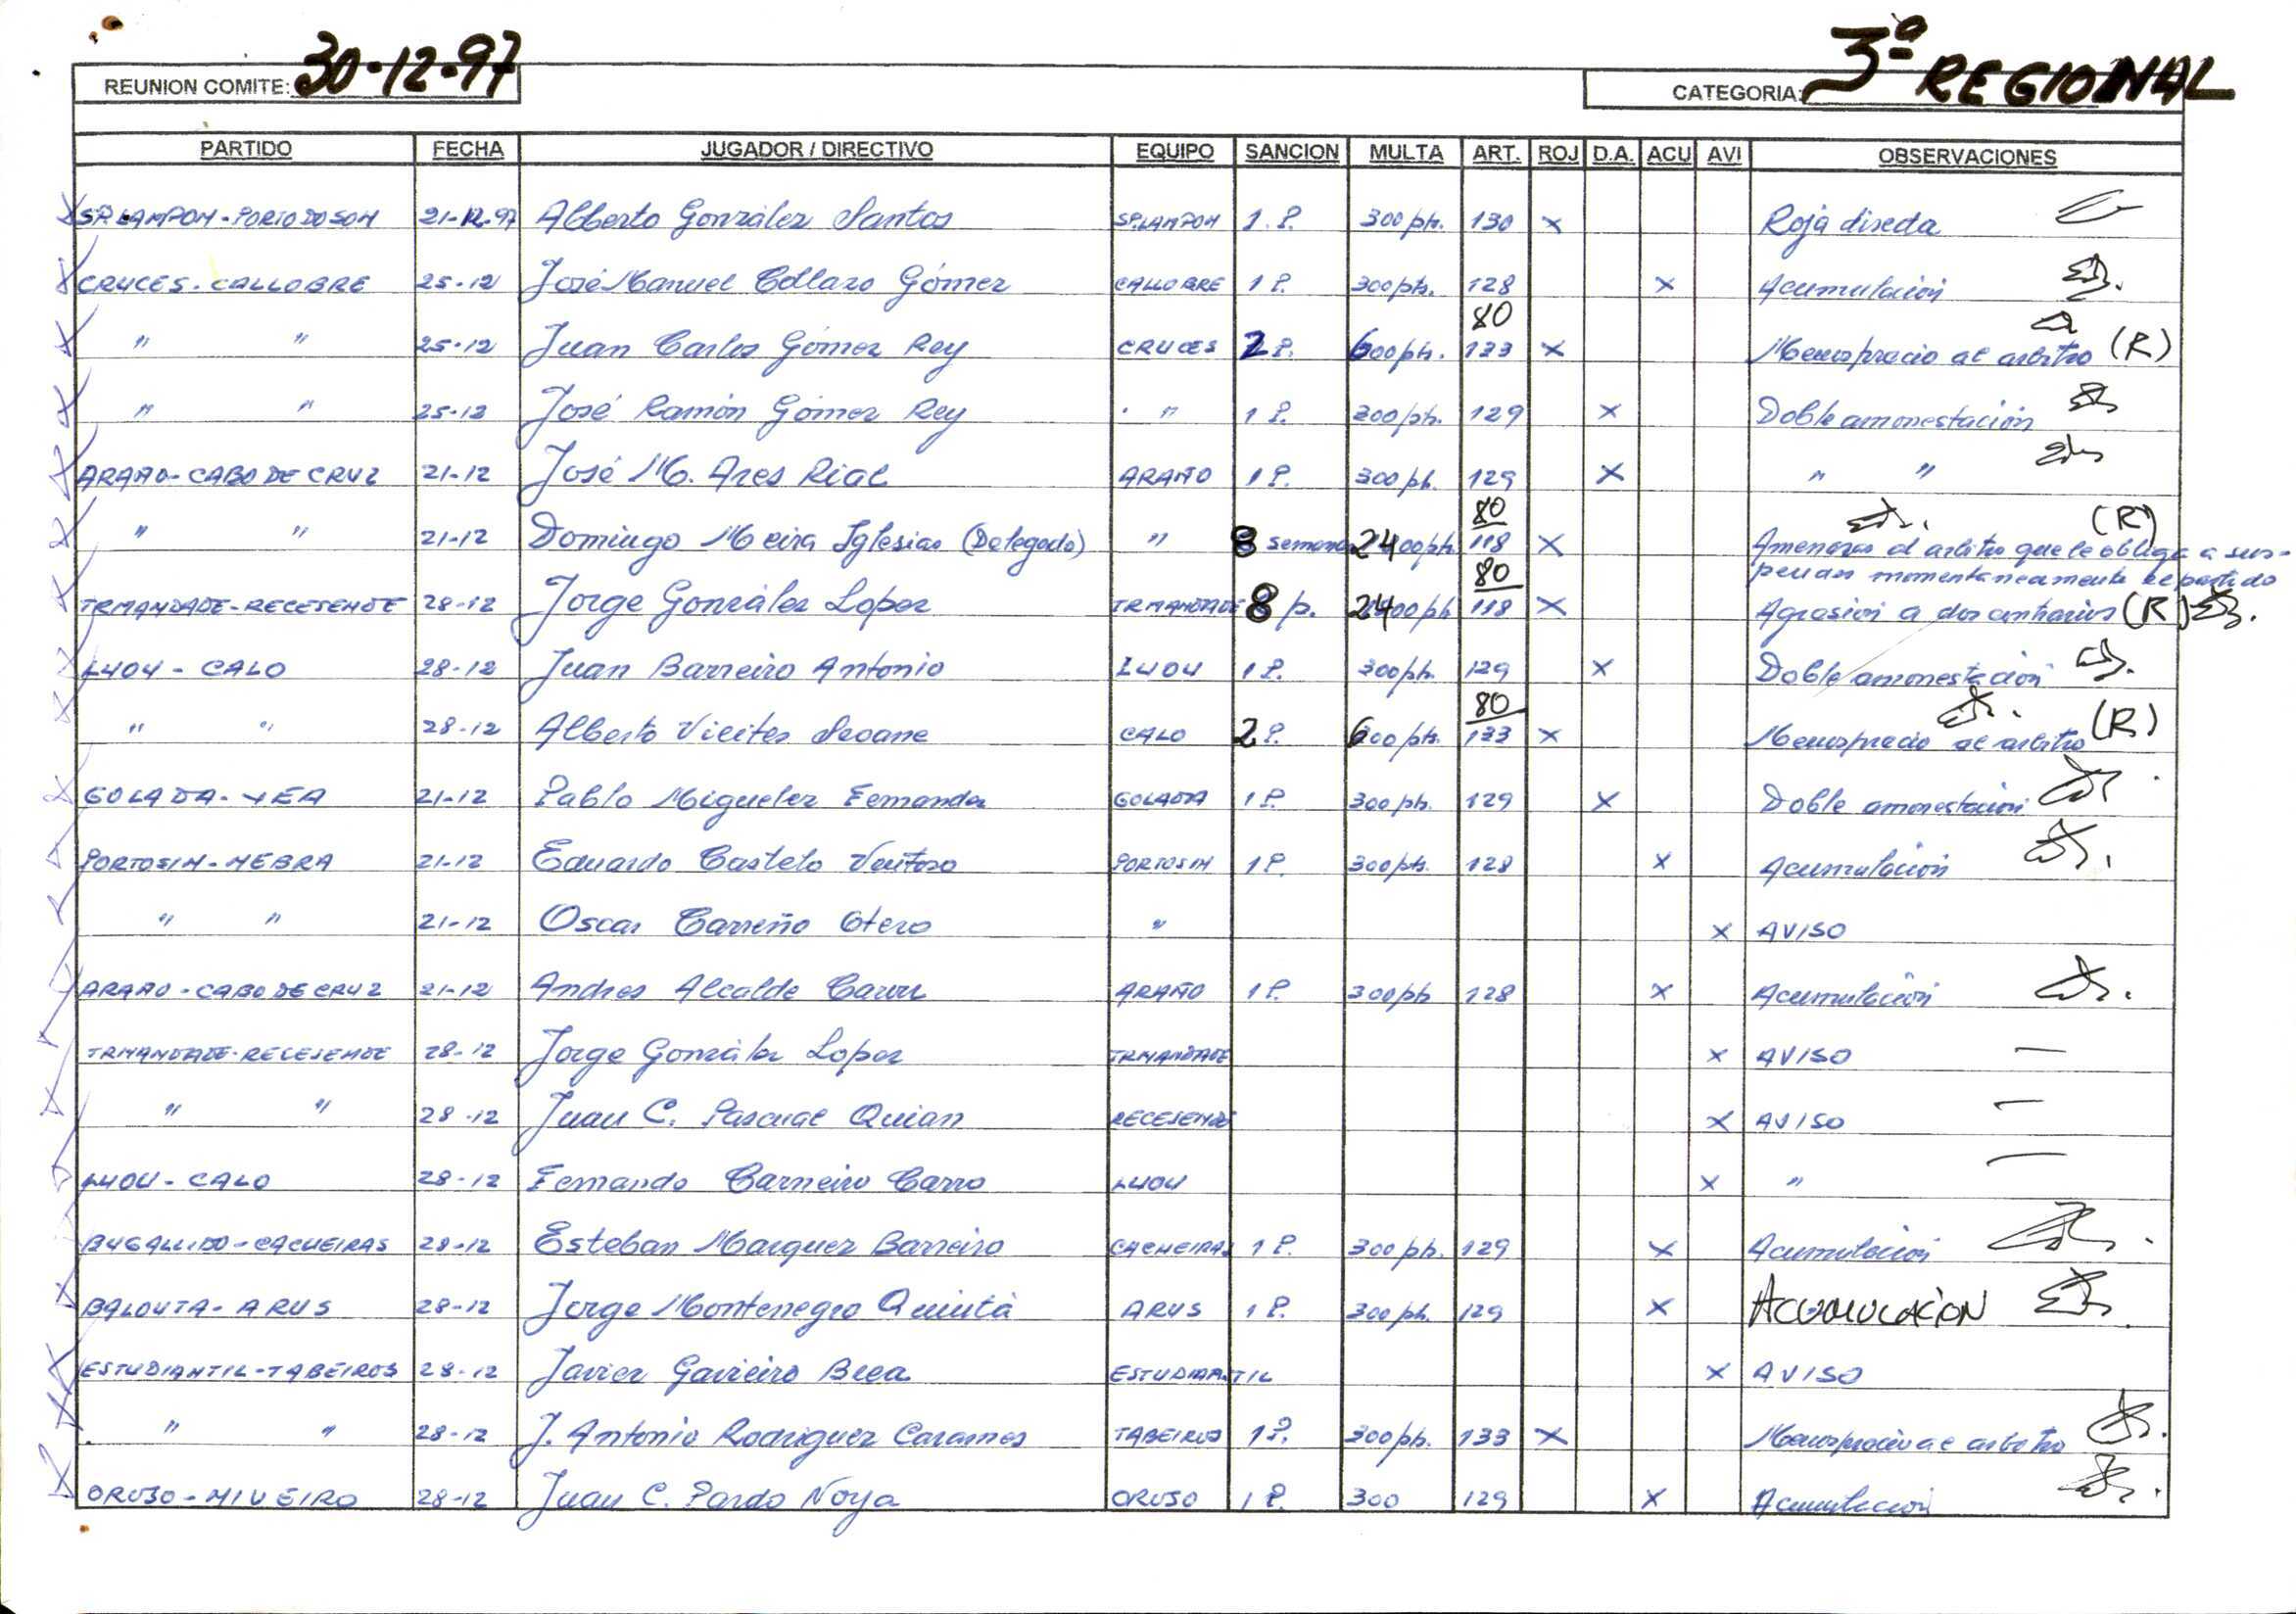 REUNION COMITE: 30-12-97 CATEGORIA: 3ª REGIONAL
PARTIDO FECHA JUGADOR / DIRECTIVO EQUIPO SANCION MULTA ART. ROJ D.A. ACU AVI OBSERVACIONES
SP. LAMPON - PORTO DO SON 21-12-97 Alberto González Santos SP. LAMPON 1 P. 300 pts. 130 x Roja directa
CRUCES - CALLOBRE 25-12 José Manuel Collazo Gómez CALLOBRE 1 P. 300 pts. 128 x Acumulación
80
" " 25-12 Juan Carlos Gómez Rey CRUCES 2 P. 600 pts. 133 x Menosprecio al arbitro (R)
" " 25-12 José Ramón Gómez Rey " 1 P. 300 pts. 129 x Doble amonestación
ARAÑO - CABO DE CRUZ 21-12 José M. Ares Rial ARAÑO 1 P. 300 pts. 129 x " "
80 (R)
" " 21-12 Domingo Meira Iglesias (Delegado) " 8 semanas 2400 pts 118 x Amenazas al arbitro que le obliga a sus-
80 pender momentaneamente el partido
IRMANDADE - RECESENDE 28-12 Jorge González Lopez IRMANDADE 8 p. 2400 pts 118 x Agresión a dos contrarios (R)
LUOU - CALO 28-12 Juan Barreiro Antonio LUOU 1 P. 300 pts. 129 x Doble amonestación
80
" " 28-12 Alberto Vieites Seoane CALO 2 P. 600 pts. 133 x Menosprecio al arbitro (R)
GOLADA - VEA 21-12 Pablo Miguelez Fernandez GOLADA 1 P. 300 pts. 129 x Doble amonestación
PORTOSIN - NEBRA 21-12 Eduardo Castelo Ventoso PORTOSIN 1 P. 300 pts. 128 x Acumulación
" " 21-12 Oscar Carreño Otero " x AVISO
ARAÑO - CABO DE CRUZ 21-12 Andres Alcalde ARAÑO 1 P. 300 pts 128 x Acumulación
IRMANDADE - RECESENDE 28-12 Jorge González Lopez IRMANDADE x AVISO —
" " 28-12 Juan C. Pascual Quian RECESENDE x AVISO —
LUOU - CALO 28-12 Fernando Carneiro Carro LUOU x " —
BUGALLIDO - CACHEIRAS 28-12 Esteban Marquez Barreiro CACHEIRAS 1 P. 300 pts. 129 x Acumulación
BALOUTA - ARUS 28-12 Jorge Montenegro Quintá ARUS 1 P. 300 pts. 129 x ACUMULACION
ESTUDIANTIL - TABEIROS 28-12 Javier Gavieiro Brea ESTUDIANTIL x AVISO
" " 28-12 J. Antonio Rodriguez Carames TABEIROS 1 P. 300 pts. 133 x Menosprecio al arbitro
ORUSO - NIVEIRO 28-12 Juan C. Pardo Noya ORUSO 1 P. 300 129 x Acumulacion